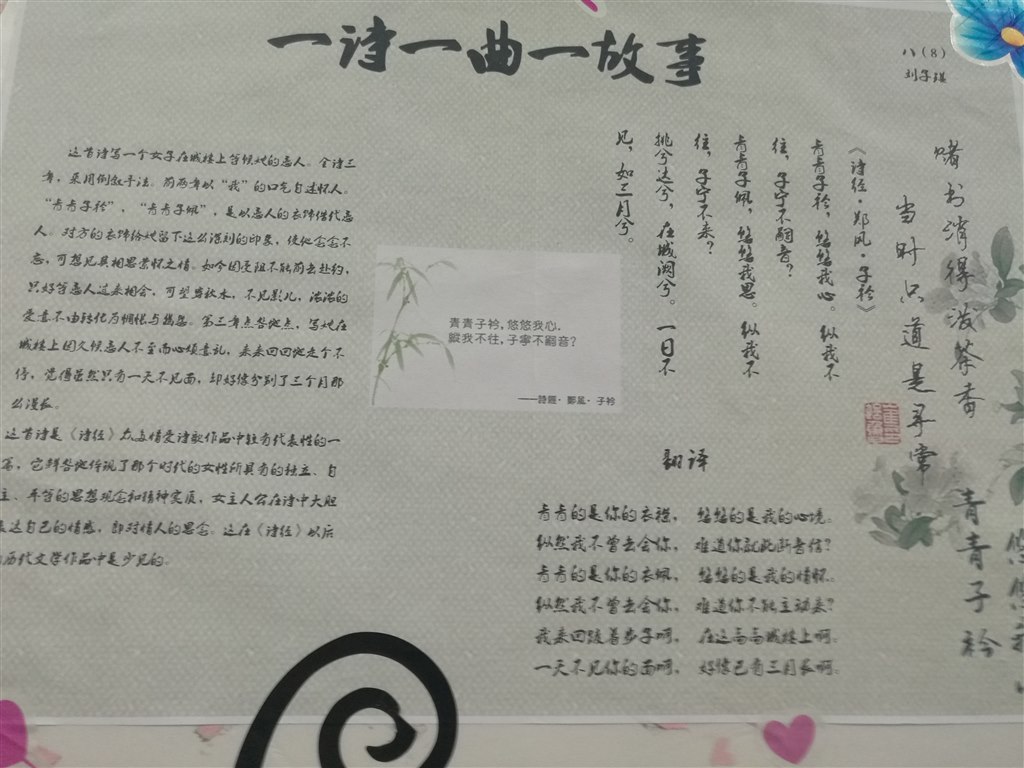 一诗一曲一故事
八(8)
刘子琪
赌书消得泼茶香
当时只道是寻常
《诗经·郑风·子衿》
青青子衿，悠悠我心。纵我不
往，子宁不嗣音？
青青子佩，悠悠我思。纵我不
往，子宁不来？
挑兮达兮，在城阙兮。一日不
见，如三月兮。
这首诗写一个女子在城楼上等候她的恋人。全诗三
章，采用倒叙手法。前两章以“我”的口气自述怀人。
“青青子衿”，“青青子佩”，是以恋人的衣饰借代恋
人。对方的衣饰给她留下这么深刻的印象，使她念念不
忘，可想见其相思萦怀之情。如今因受阻不能前去赴约，
只好等恋人过来相会，可望穿秋水，不见影儿，浓浓的
爱意不由转化为惆怅与幽怨。第三章点名地点，写她在
城楼上因久候恋人不至而心烦意乱，来来回回地走个不
停，觉得虽然只有一天不见面，却好像分别了三个月那
么漫长。
这首诗是《诗经》众多情爱诗歌作品中较有代表性的一
篇，它鲜明地体现了那个时代的女性所具有的独立、自
主、平等的思想观念和精神实质，女主人公在诗中大胆
表达自己的情感，即对情人的思念。这在《诗经》以后
的历代文学作品中是少见的。
青青子衿,悠悠我心.
縱我不往,子寧不嗣音?
——詩經·鄭風·子衿
翻译
青青的是你的衣襟， 悠悠的是我的心境。
纵然我不曾去会你， 难道你就此断音信？
青青的是你的衣佩， 悠悠的是我的情怀。
纵然我不曾去会你， 难道你不能主动来？
我来回踱着步子呵， 在这高高城楼上啊。
一天不见你的面呵， 好像已有三月长啊。
青青子衿
悠悠我心